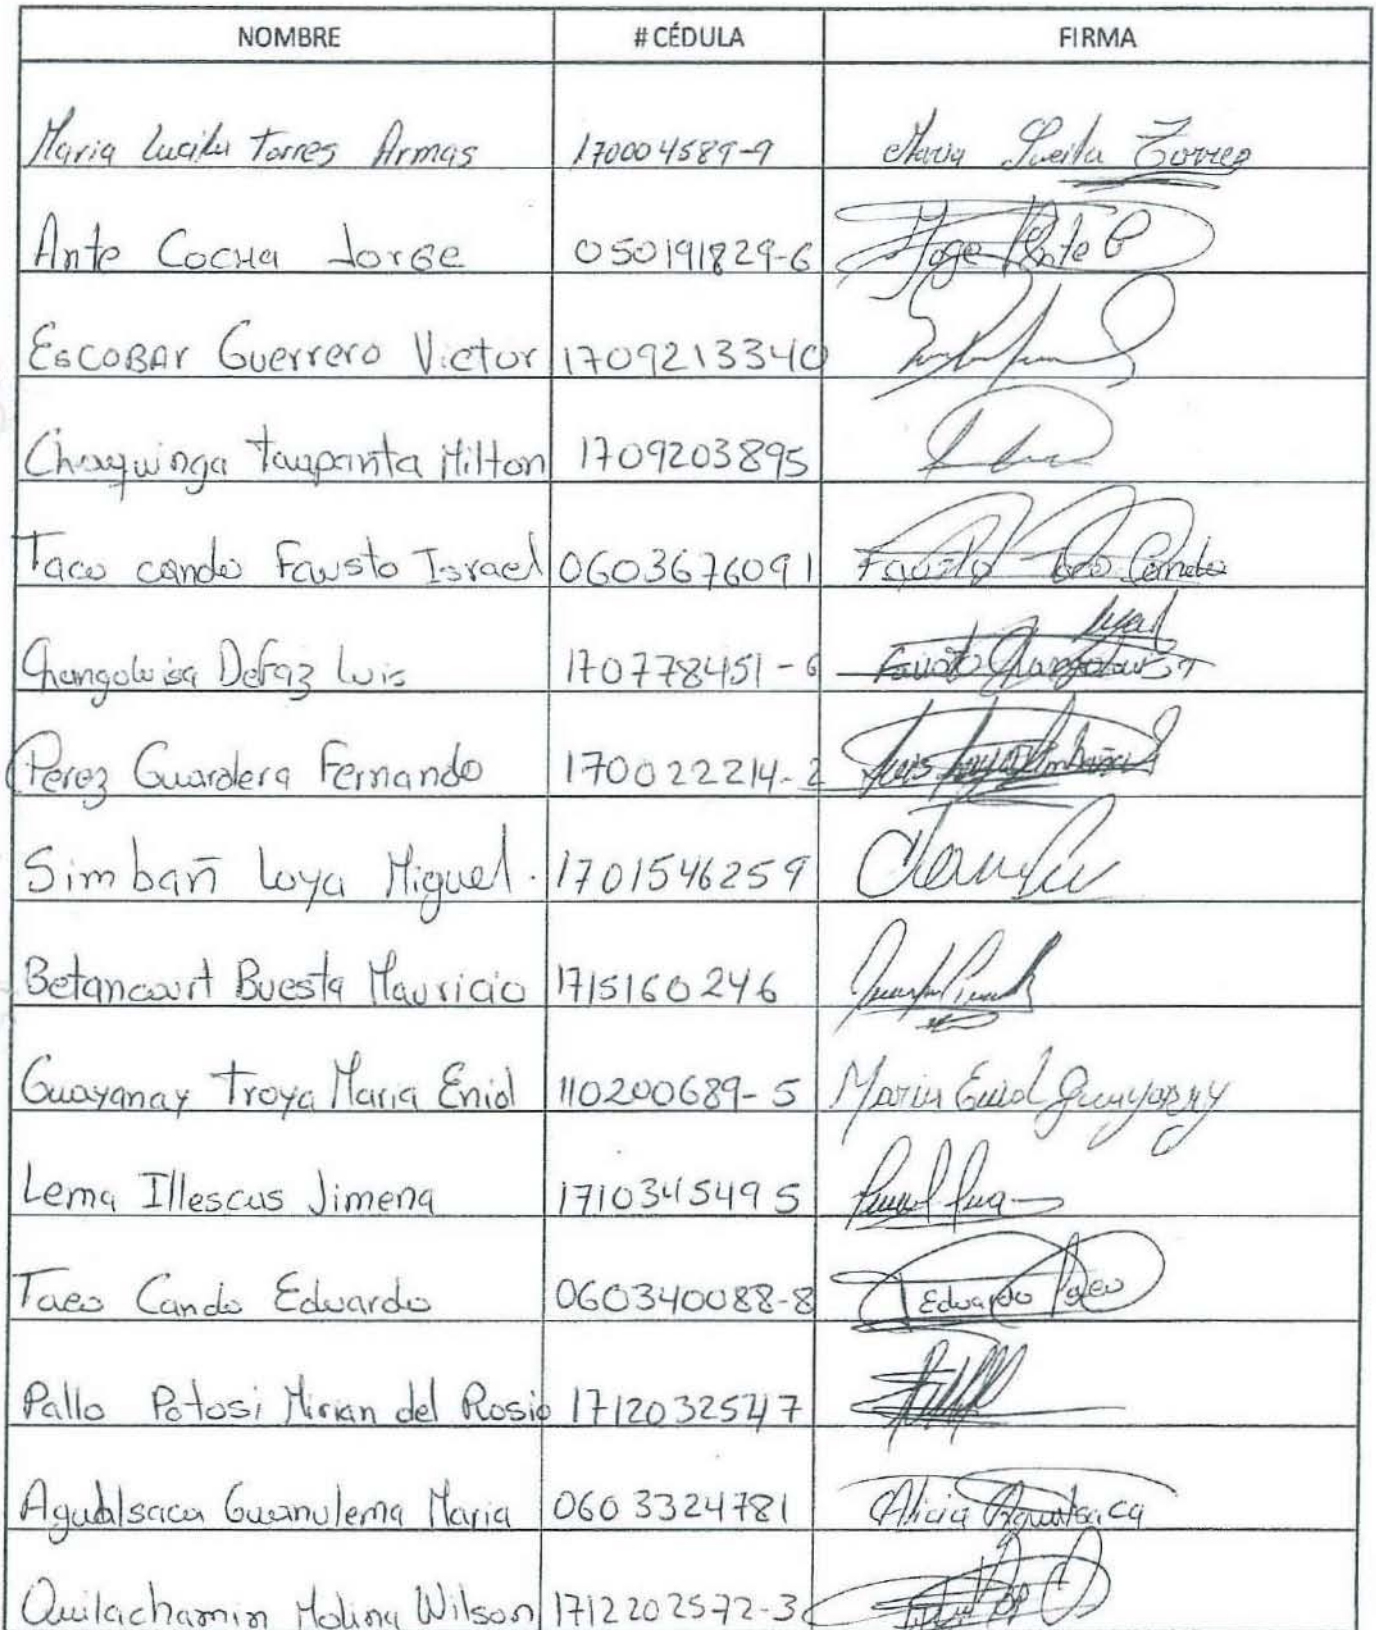 NOMBRE # CÉDULA FIRMA
Maria Lucila Torres Armas 170004589-9 Maria Lucila Torres
Ante Cocha Jorge 050191829-6 Jorge Ante C
Escobar Guerrero Victor 1709213340
Chuquinga Taupanta Milton 1709203895
Taco cando Fausto Israel 0603676091 Fausto Taco Cando
Changoluisa Defaz Luis 170778451-6 Fausto Changoluisa
Perez Guardera Fernando 170022214-2 Luis
Simbañ Loya Miguel. 1701546259
Betancourt Buesta Mauricio 1715160246
Guayanay Troya Maria Enid 110200689-5 Maria Enid Guayanay
Lema Illescas Jimena 1710345495
Taco Cando Eduardo 060340088-8 Eduardo Taco
Pallo Potosi Mirian del Rosio 1712032547
Agualsaca Guanulema Maria 0603324781 Alicia Agualsaca
Quilachamin Molina Wilson 1712202572-3